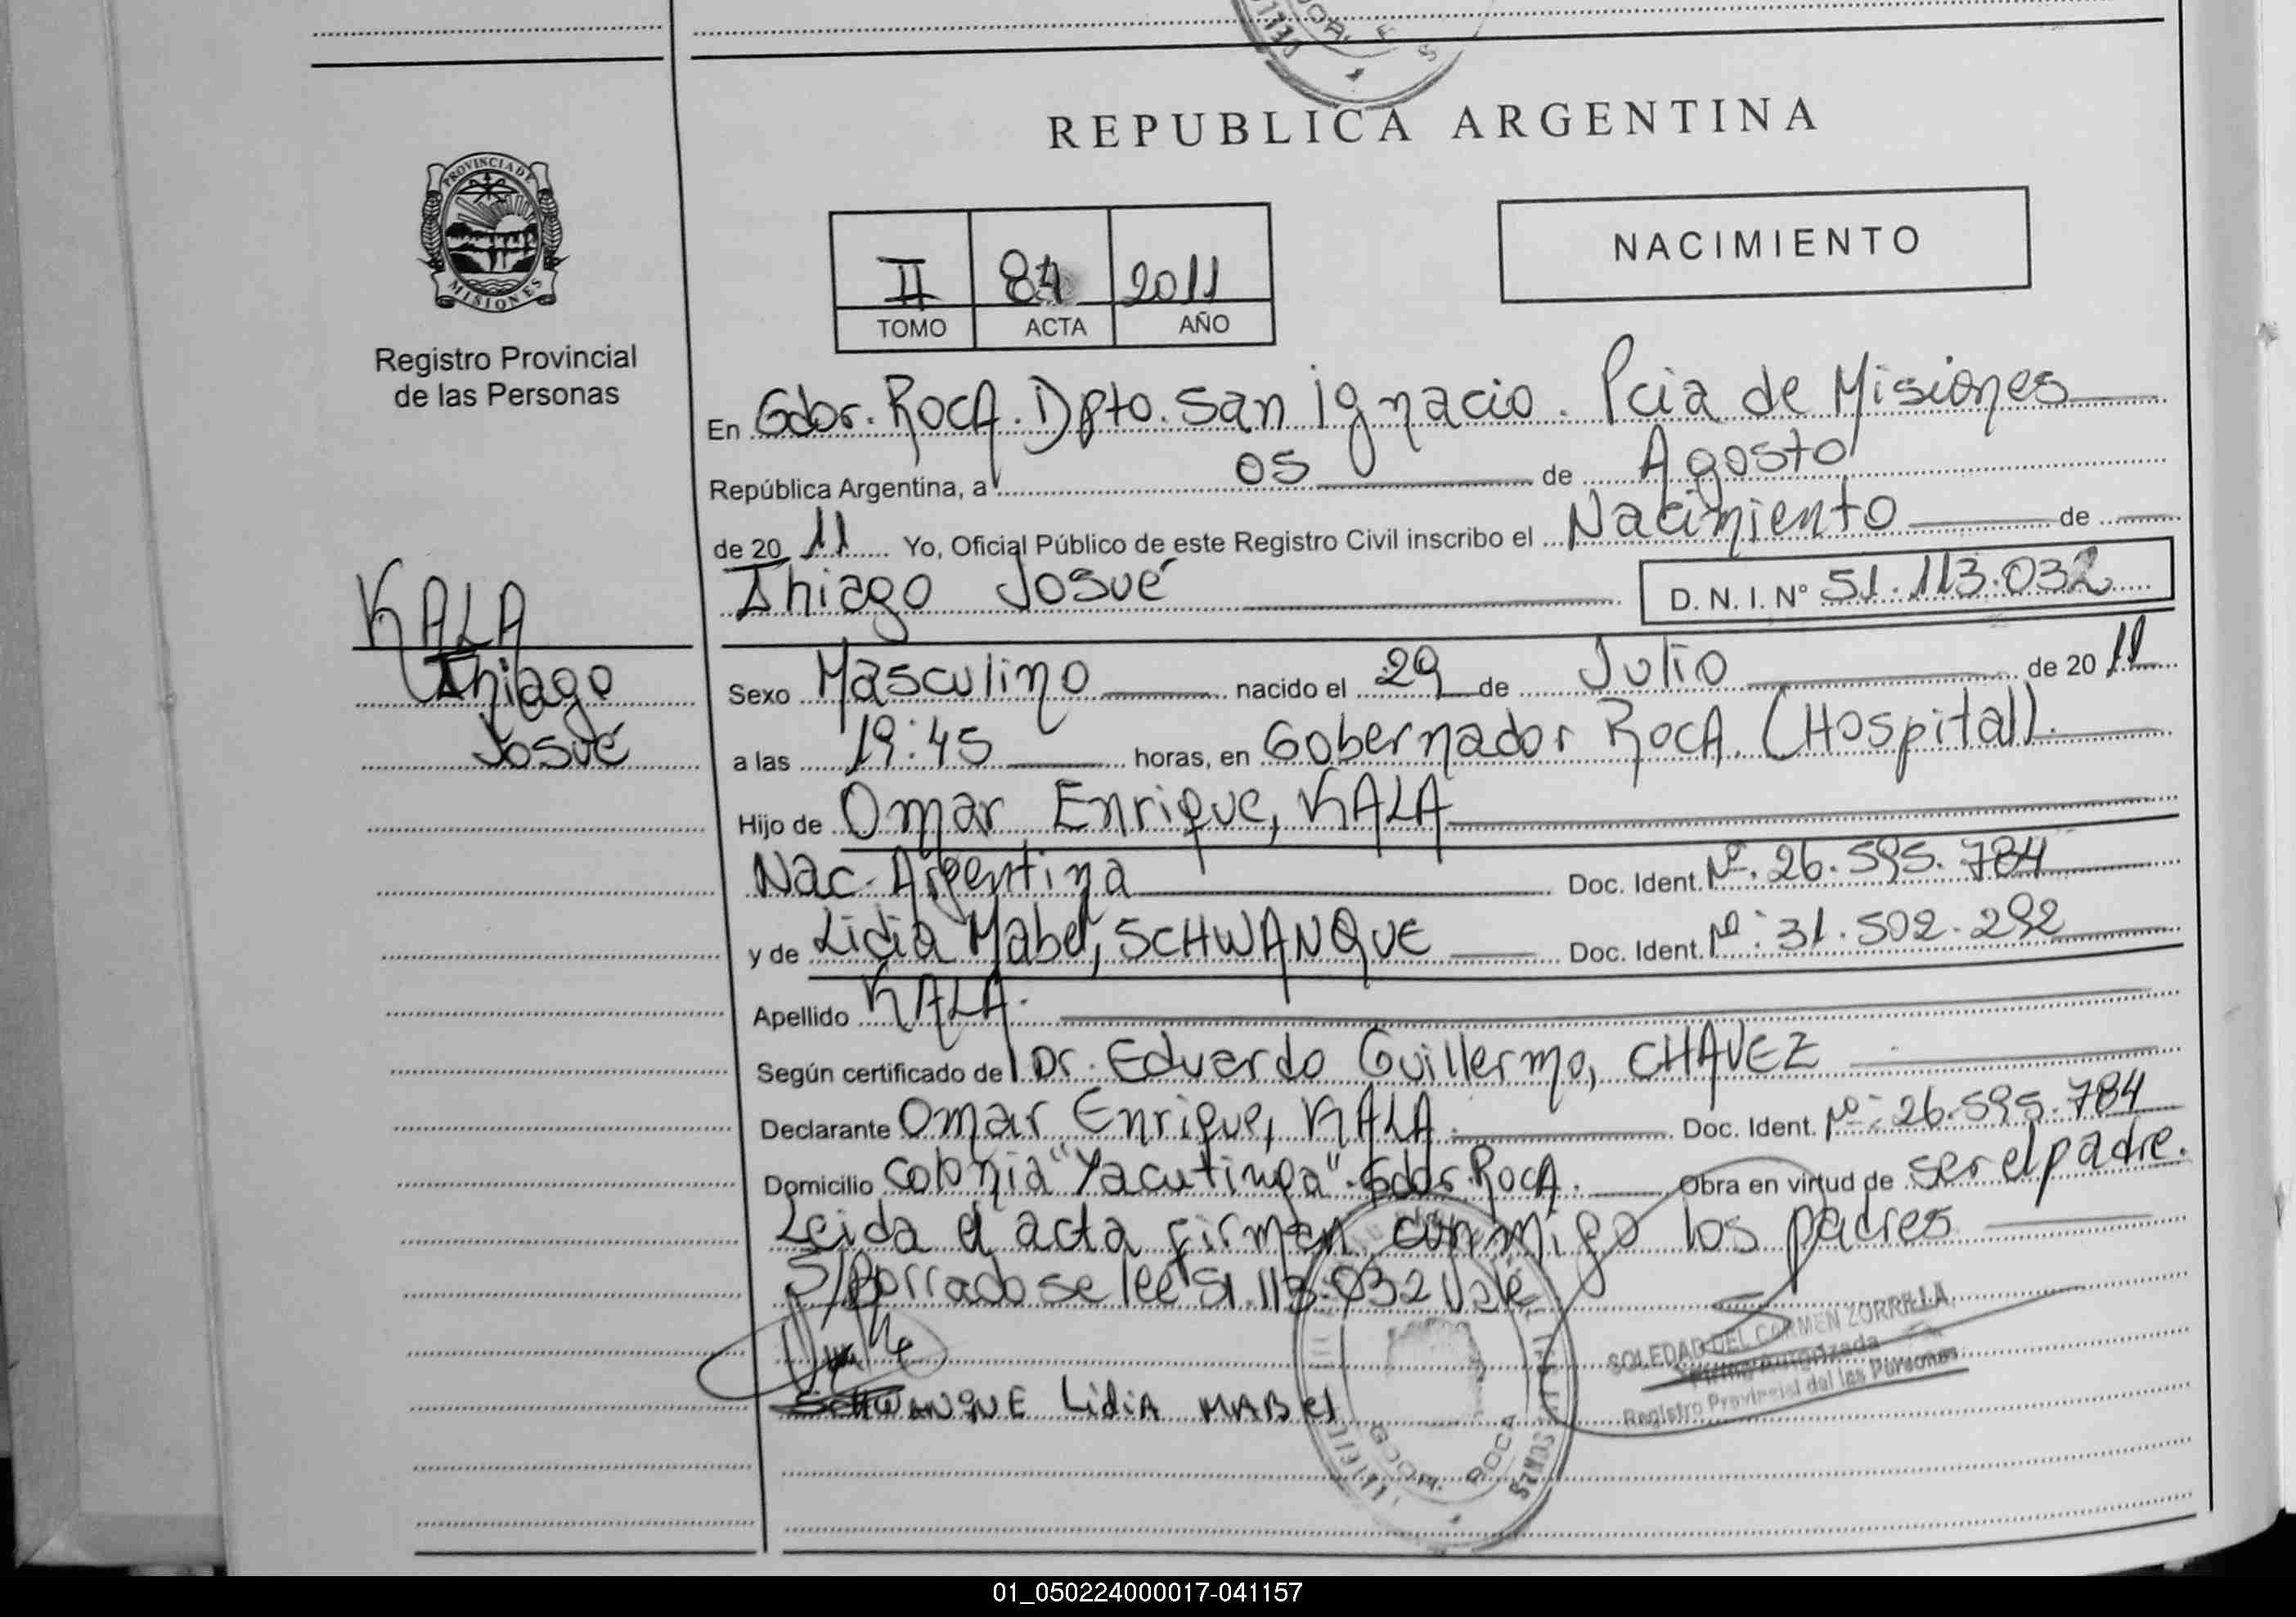 REPUBLICA ARGENTINA
PROVINCIA DE
MISIONES
Registro Provincial
de las Personas
II 84 2011
TOMO ACTA AÑO
NACIMIENTO
En Gdor. Roca. Dpto. San Ignacio. Pcia de Misiones
República Argentina, a 05 de Agosto
de 2011 Yo, Oficial Público de este Registro Civil inscribo el Nacimiento de
Thiago Josué D.N.I. Nº 51.113.032
KALA
Thiago
Josué
Sexo Masculino nacido el 29 de Julio de 2011
a las 19:45 horas, en Gobernador Roca. (Hospital).
Hijo de Omar Enrique, KALA
Nac. Argentina Doc. Ident. Nº. 26.595.784
y de Lidia Mabel, SCHWANQUE Doc. Ident. Nº: 31.502.292
Apellido KALA.
Según certificado de Dr. Eduardo Guillermo, CHAVEZ
Declarante Omar Enrique, KALA. Doc. Ident. Nº: 26.595.784
Domicilio Colonia "Yacutinga". Gdor. Roca. Obra en virtud de ser el padre.
Leida el acta firman conmigo los padres
S/Borrado se lee 51.113.032 Vale
SOLEDAD DEL CARMEN ZORRILLA
Firma Autorizada
Registro Provincial del las Personas
SCHWANQUE Lidia MABel
GDOR. ROCA
01_050224000017-041157